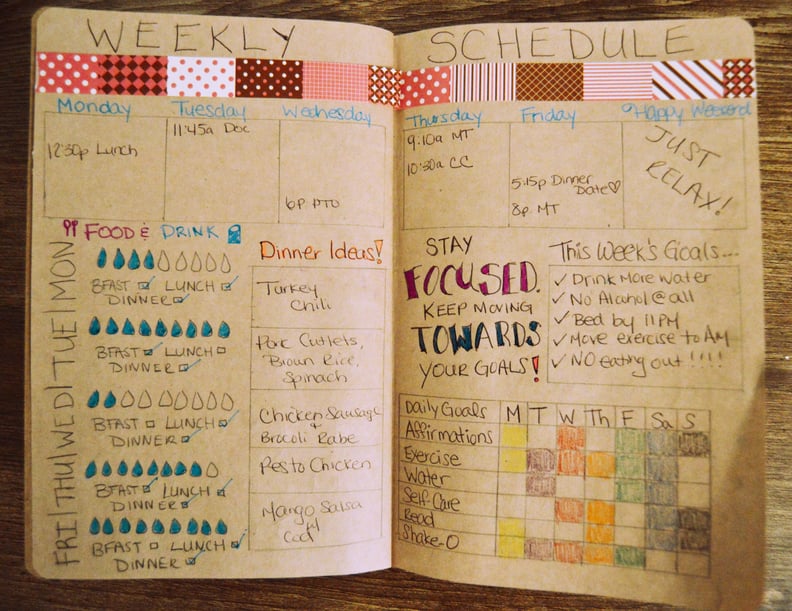 WEEKLY
Monday
Tuesday
Wednesday
12:30p Lunch
11:45a Doc
6p PTO
FOOD & DRINK
MON
BFAST LUNCH
DINNER
TUE
BFAST LUNCH
DINNER
WED
BFAST LUNCH
DINNER
THU
BFAST LUNCH
DINNER
FRI
BFAST LUNCH
DINNER
Dinner Ideas!
Turkey
Chili
Pork Cutlets,
Brown Rice,
Spinach
Chicken Sausage
+
Brocoli Rabe
Pesto Chicken
Mango Salsa
w/
Cod
SCHEDULE
Thursday
Friday
Happy Weekend
9:10a MT
10:30a CC
5:15p Dinner
Date♡
8p MT
JUST
RELAX!
STAY
FOCUSED.
KEEP MOVING
TOWARDS
YOUR GOALS!
This Week's Goals...
✓ Drink More Water
✓ No Alcohol @ all
✓ Bed by 11PM
✓ Move exercise to AM
✓ NO eating out !!!!
Daily Goals M T W Th F Sa S
Affirmations
Exercise
Water
Self Care
Read
Shake-O